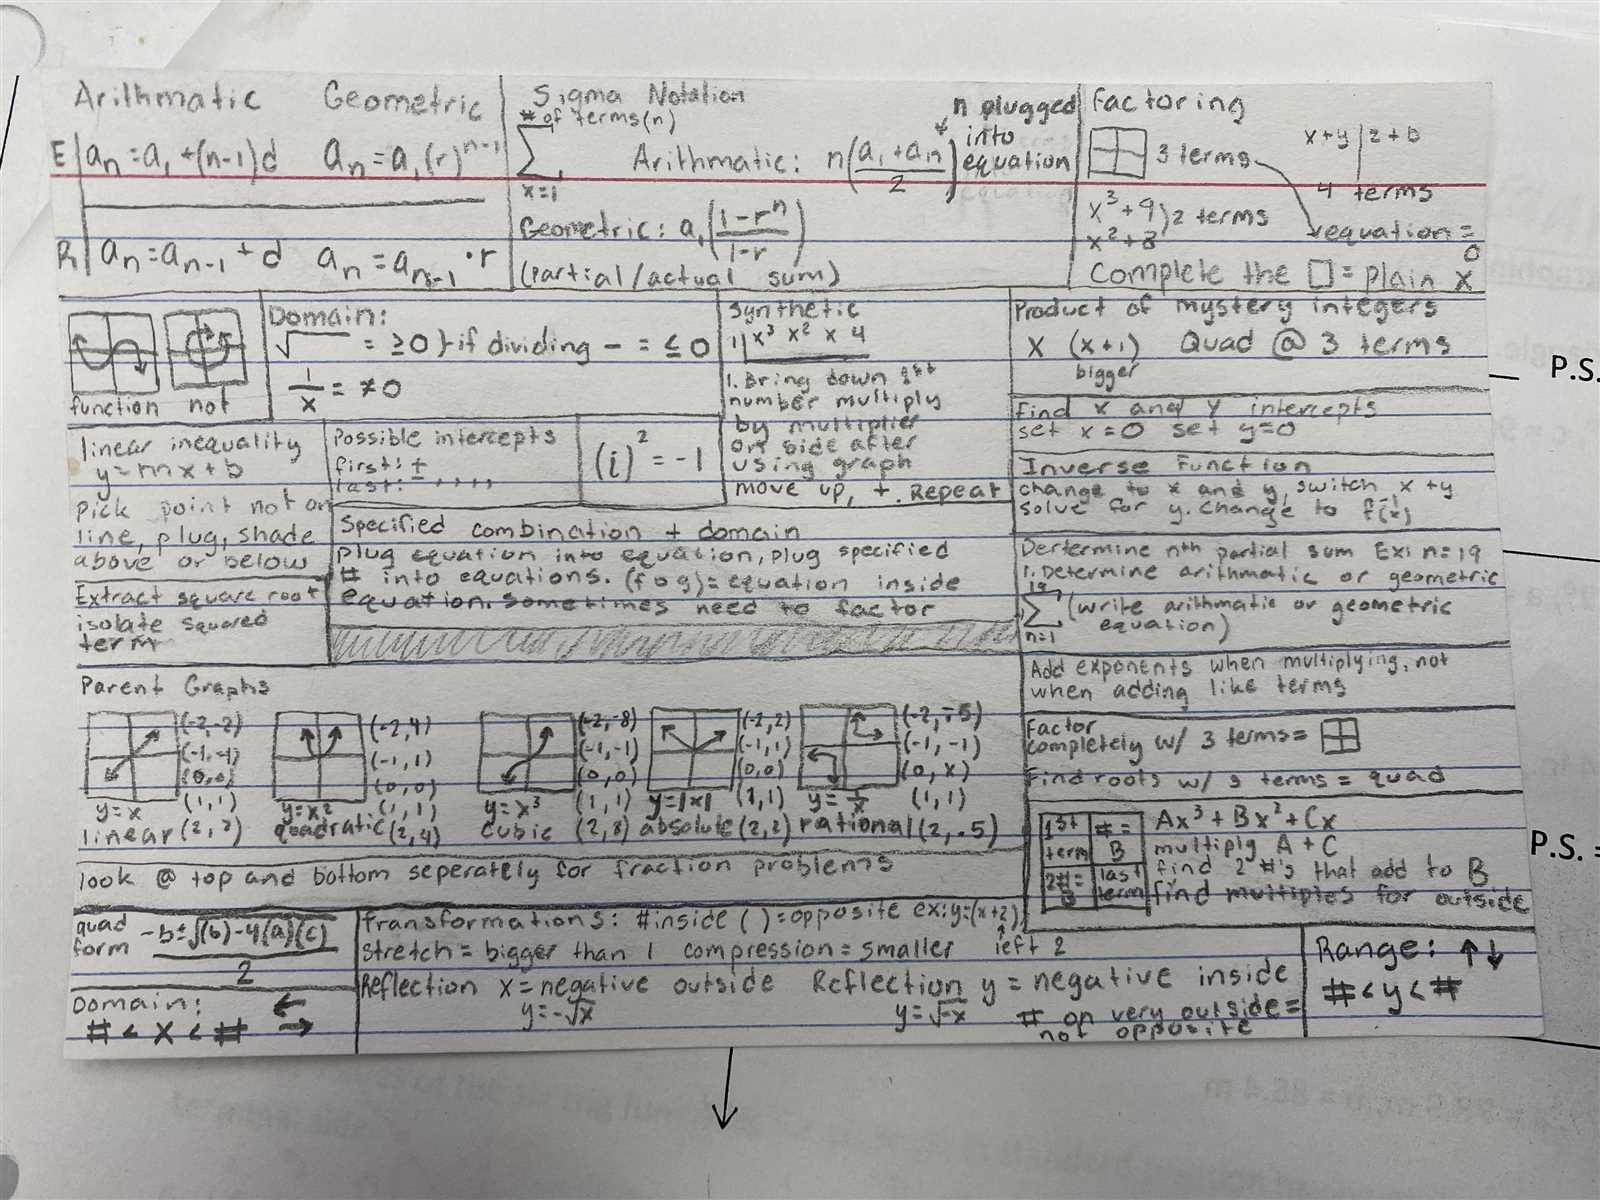 Arithmatic Geometric
E| an=a1+(n-1)d an=a1(r)^n-1
R| an=an-1+d an=an-1·r
Sigma Notation
# of terms(n)
∑
x=1
Arithmatic: n(a1+an/2)
n plugged
into
equation
Geometric: a1(1-r^n/1-r)
(partial/actual sum)
Factoring
3 terms
x+y|z+b
4 terms
x^3+9
x^2+8
)2 terms
equation=
0
Complete the □=plain x
function not
Domain:
√ = ≥0}if dividing - = ≤0
1/x = ≠0
Synthetic
1| x^3 x^2 x 4
1. Bring down 1st
number multiply
by multiplier
on side after
using graph
move up, +. Repeat
Product of mystery integers
x (x+1) Quad @ 3 terms
bigger
find x and y intercepts
set x=0 set y=0
linear inequality
y=mx+b
Pick point not on
line, plug, shade
above or below
Possible intercepts
first: ±
last: ±, , , ,
(i)^2=-1
Inverse Function
change to x and y, switch x+y
solve for y. change to f^-1(x)
Specified combination + domain
plug equation into equation, plug specified
# into equations. (fog)=equation inside
equation. sometimes need to factor
Extract square root
isolate squared
term
Dertermine nth partial sum Ex: n=19
1. Determine arithmatic or geometric
19
∑
n=1
(write arithmatic or geometric
equation)
Add exponents when multiplying, not
when adding like terms
Factor
completely w/ 3 terms=
Find roots w/ 3 terms = quad
Parent Graphs
(-2,-2)
(-1,-1)
(0,0)
(1,1)
(2,2)
y=x
linear
(-2,4)
(-1,1)
(0,0)
(1,1)
(2,4)
y=x^2
quadratic
(-2,-8)
(-1,-1)
(0,0)
(1,1)
(2,8)
y=x^3
cubic
(-2,2)
(-1,1)
(0,0)
(1,1)
(2,2)
y=|x|
absolute
(-2,-.5)
(-1,-1)
(0,x)
(1,1)
(2,.5)
y=1/x
rational
1st
term
#=
B
2#=
B
last
term
Ax^3+Bx^2+Cx
multiply A+C
find 2 #'s that add to B
find multiples for outside
look @ top and bottom seperately for fraction problems
quad
form
-b±√(b)-4(a)(c)
2
Domain: ←
#<x<# →
Transformations: #inside ()=opposite ex:y=(x+2)
↑
left 2
Stretch= bigger than 1 compression=smaller
Reflection x=negative outside Reflection y=negative inside
y=-√x y=√-x
# on very outside=
not opposite
Range: ↑↓
#<y<#
P.S.
P.S. =